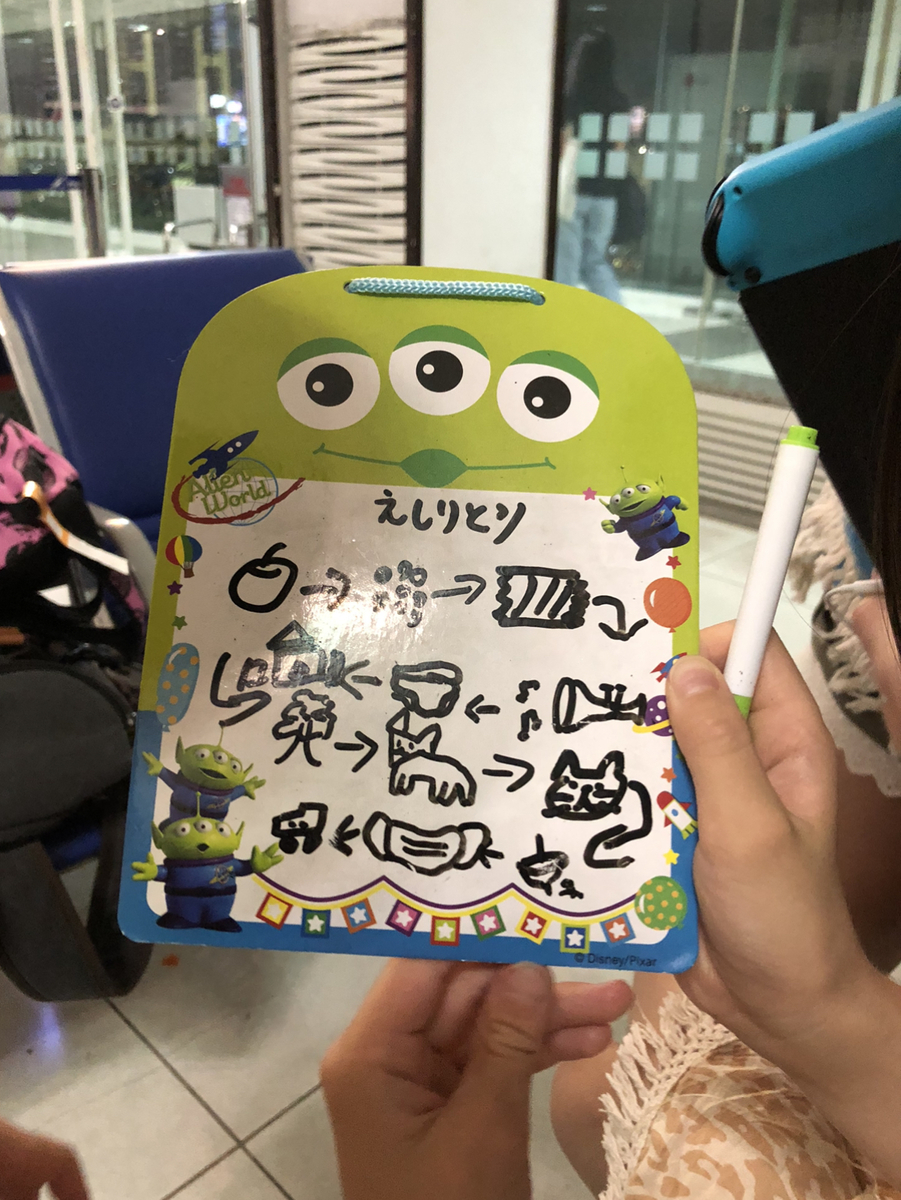 Alien
World
えしりとり
© Disney/Pixar